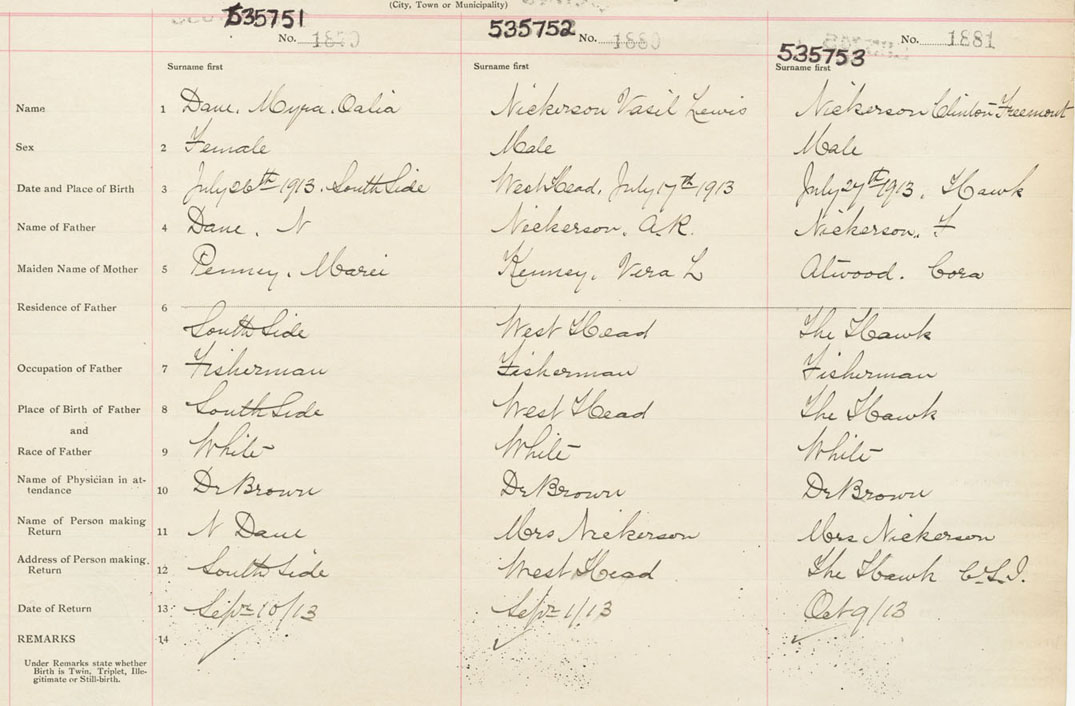 (City, Town or Municipality)
535751
No. 1879
535752
No. 1880
535753
No. 1881
Surname first
Surname first
Surname first
Name 1 Dane, Myra. Oalia
Nickerson Vasil Lewis
Nickerson Clinton Freemont
Sex 2 Female
Male
Male
Date and Place of Birth 3 July 26th 1913. South Side
West Head, July 17th 1913
July 27th 1913, Hawk
Name of Father 4 Dane, N
Nickerson, A.R.
Nickerson, F
Maiden Name of Mother 5 Penney, Marei
Kenney, Vera L
Atwood. Cora
Residence of Father 6
South Side
West Head
The Hawk
Occupation of Father 7 Fisherman
Fisherman
Fisherman
Place of Birth of Father 8 South Side
West Head
The Hawk
and
Race of Father 9 White
White
White
Name of Physician in at-
tendance 10 Dr Brown
Dr Brown
Dr Brown
Name of Person making
Return 11 N Dane
Mrs Nickerson
Mrs Nickerson
Address of Person making
Return 12 South Side
West Head
The Hawk C.S.I.
Date of Return 13 Sept 10/13
Sept 1/13
Oct 9/13
REMARKS 14
Under Remarks state whether
Birth is Twin, Triplet, Ille-
gitimate or Still-birth.